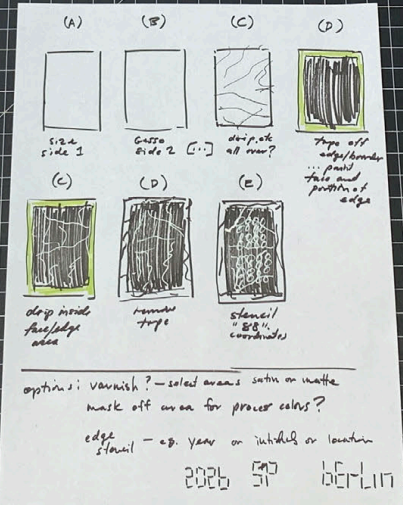 (A) (B) (C) (D)
size
side 1
Gesso
side 2 [...]
drip, etc
all over?
tape off
edge/border
... paint
face and
portion of
edge
(C) (D) (E)
drip inside
face/edge
area
remove
tape
stencil
"88".
coordinates
options: varnish? – select areas satin or matte
mask off area for process colors?
edge
stencil – e.g. year or initials or location
2026 SP bErLin